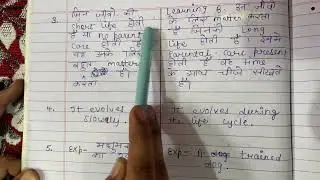 3.
जिन जीवों की
Short life होती
है या no parental
care होती है
यह उनके लिए
बहुत matter
करता है।
Learning B. उन जीवों
के लिए matter करता
है जिनकी long
life होती है। इनमें
Parental care present
होती है वह time
के साथ चीजें सीखते
है।
4. It evolves
slowly.
It evolves during
the life cycle.
5. Exp-
का
Exp- A dog trained
dog.